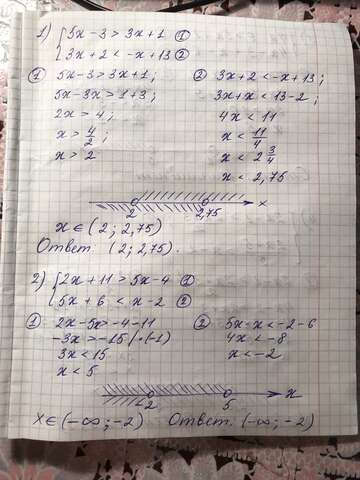 1) { 5x-3 > 3x+1 ①
{ 3x+2 < -x+13 ②
① 5x-3 > 3x+1;
5x-3x > 1+3;
2x > 4;
x > 4/2;
x > 2
② 3x+2 < -x+13;
3x+x < 13-2;
4x < 11
x < 11/4
x < 2 3/4
x < 2,75
2 2,75 x
x ∈ (2; 2,75)
Ответ (2; 2,75).
2) { 2x+11 > 5x-4 ①
{ 5x+6 < x-2 ②
① 2x-5x > -4-11
-3x > -15 /·(-1)
3x < 15
x < 5
② 5x-x < -2-6
4x < -8
x < -2
-2 5 x
x ∈ (-∞; -2) Ответ: (-∞; -2)